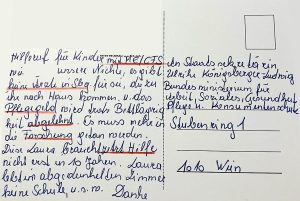 Hilferuf für Kinder mit ME/CFS
wie unsere Nichte, es gibt
keine Ärzte in Sbg für sie, die zu
ihr nach Haus kommen u. das
Pflegegeld wird trotz Bettlägrig
keit abgelehnt. Es muss mehr in
die Forschung getan werden.
Diese Laura braucht jetzt Hilfe
nicht erst in 10 Jahren. Laura
lebt im abgedunkelten Zimmer
keine Schule, u.s.w. Danke
An Staatssekretärin
Ulrike Königsberger-Ludwig
Bundesministerium für
Arbeit, Soziales, Gesundheit
Pflege u. Konsumentenschutz
Stubenring 1
1010 Wien